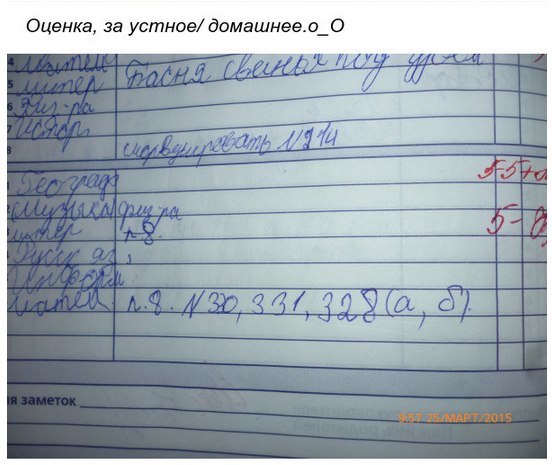 Оценка, за устное/ домашнее.o_O
4
5 литер Басня свинья под дубом
6 Физ-ра
7 Истор
8 №214
Географ 5-5+
музыка физ-ра 5-
литер п.8.
Русск яз,
Информ
матем п.8. №30, 331, 328(а, б).
ля заметок
9:57 25/МАРТ/2015